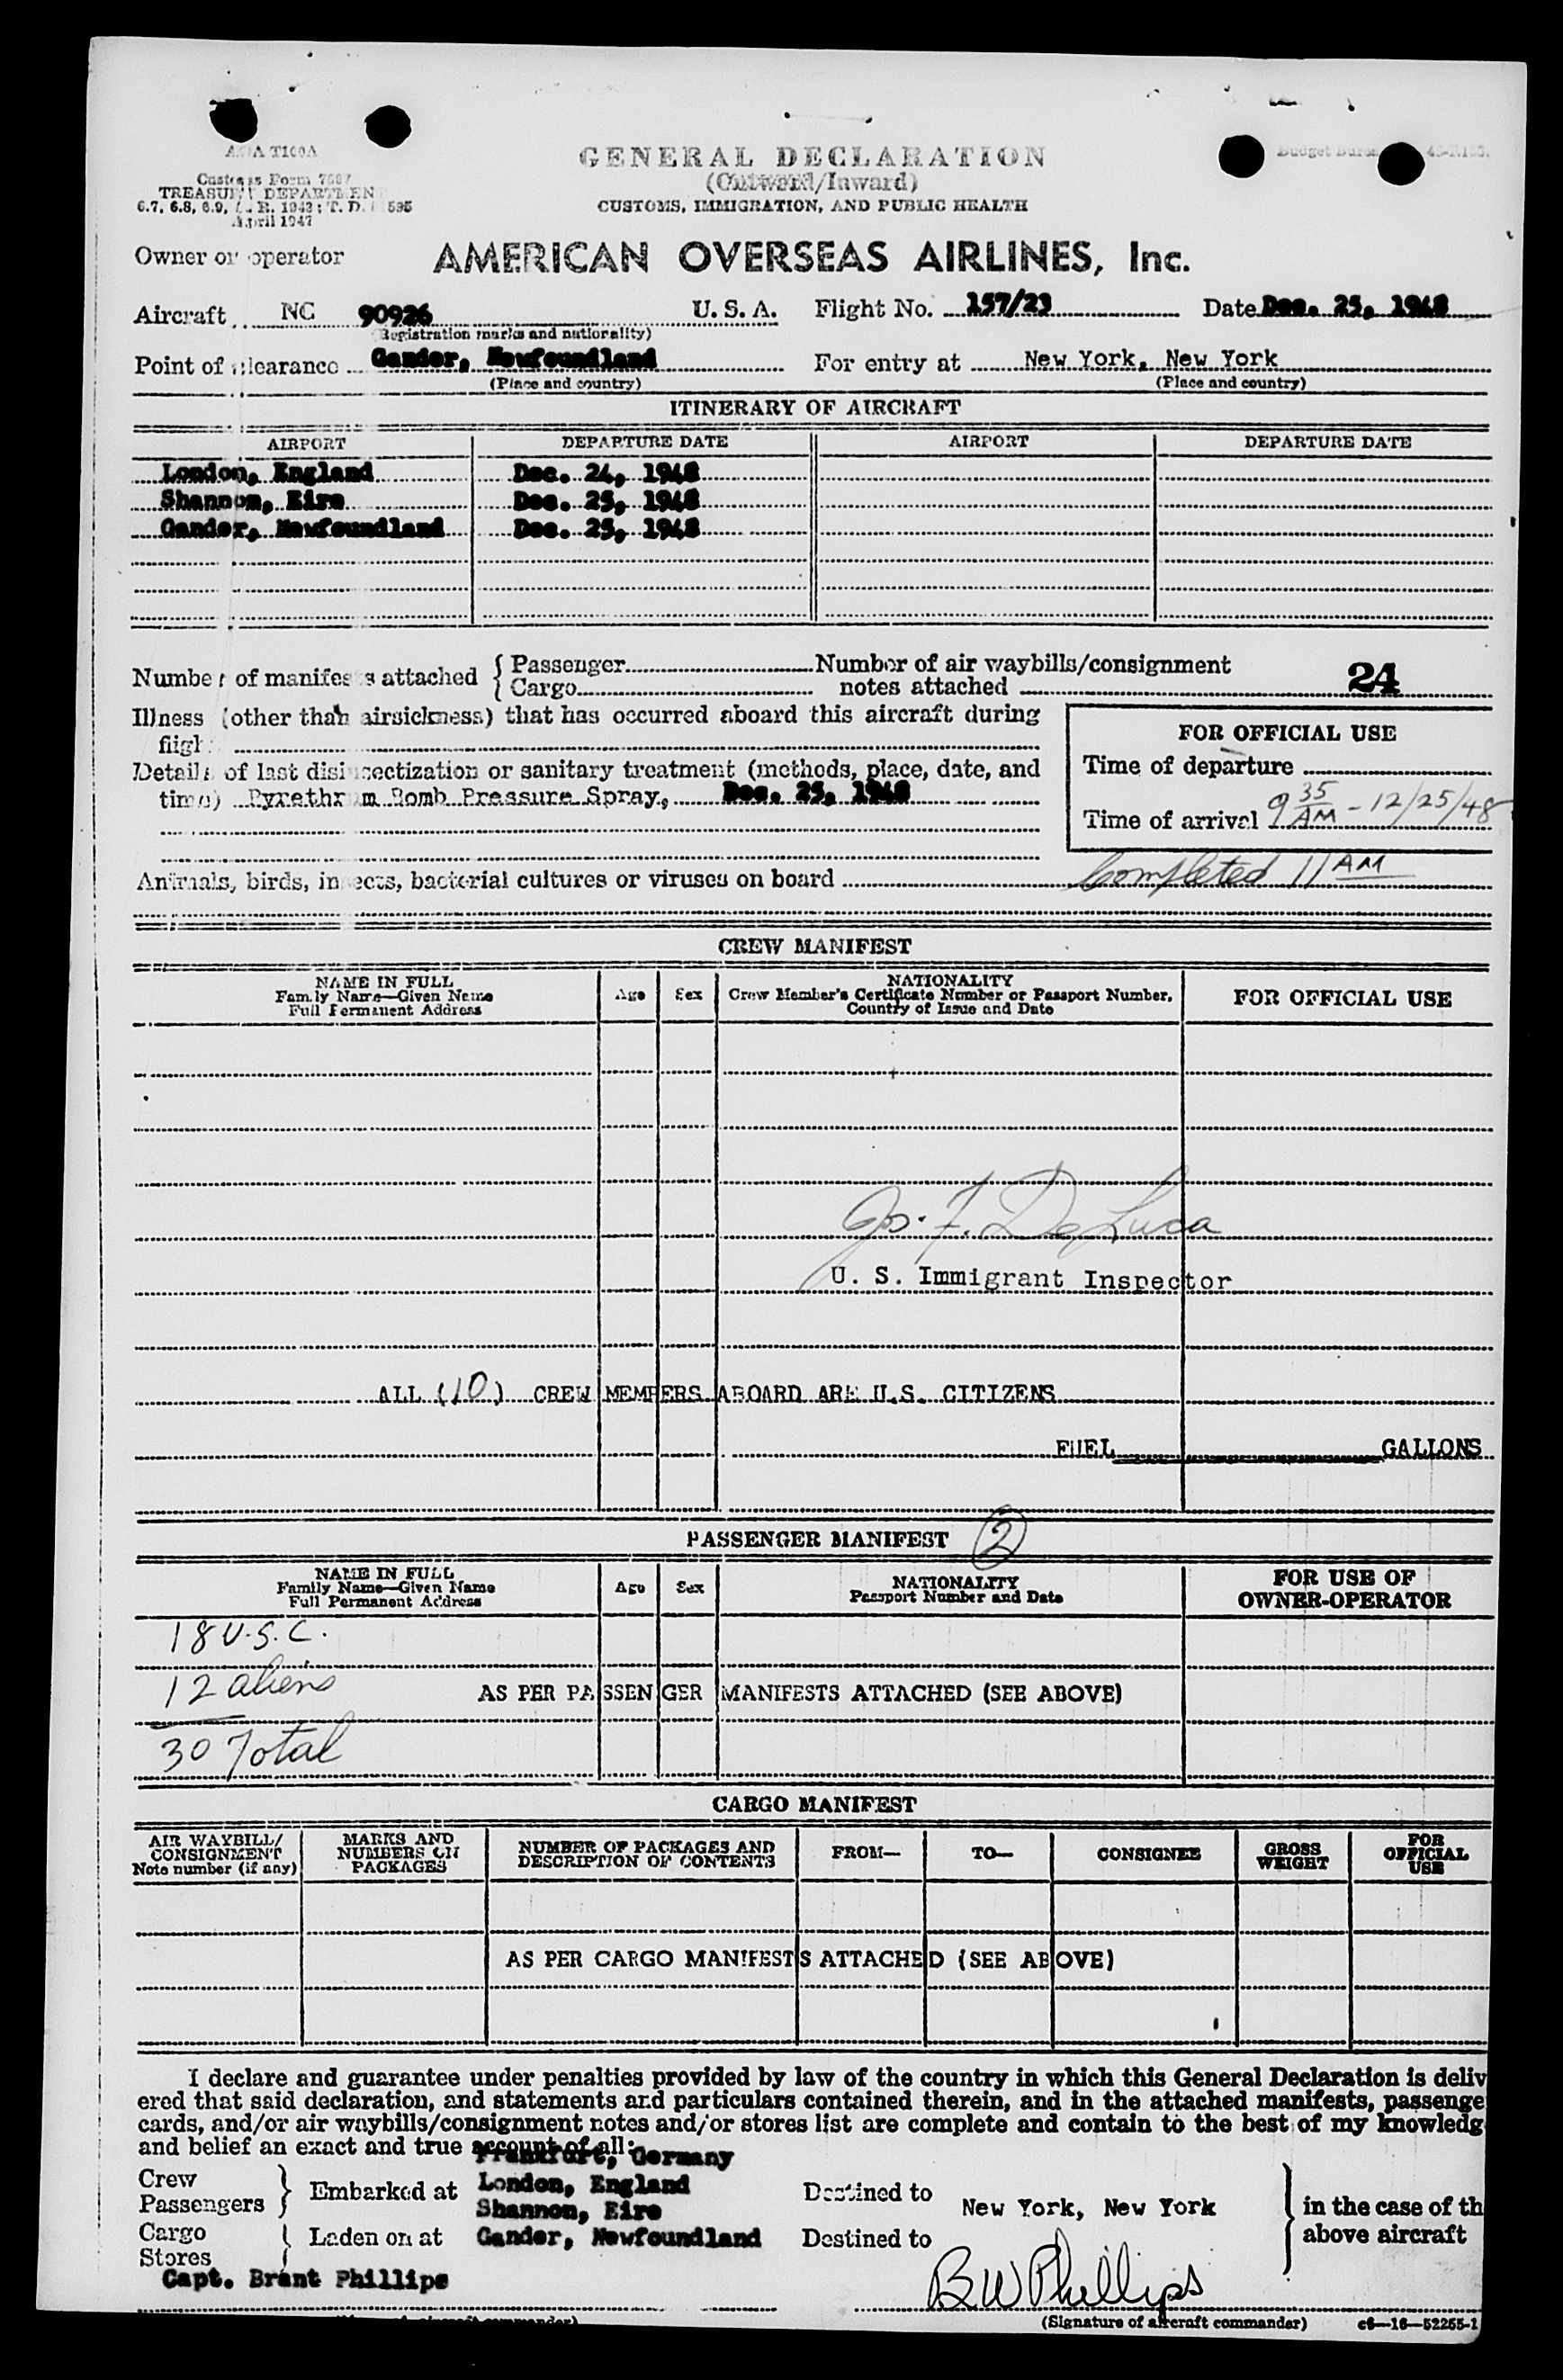 T100A
Customs Form 7507
TREASURY DEPARTMEN
6.7, 6.8, 6.9, C. R. 1943; T. D. 535
April 1947
GENERAL DECLARATION
(Outward/Inward)
CUSTOMS, IMMIGRATION, AND PUBLIC HEALTH
Budget Bureau
Owner or operator AMERICAN OVERSEAS AIRLINES, Inc.
Aircraft NC 90926 U. S. A. Flight No. 157/23 Date Dec. 25, 1948
(Registration marks and nationality)
Point of clearance Gander, Newfoundland For entry at New York, New York
(Place and country) (Place and country)
ITINERARY OF AIRCRAFT
AIRPORT DEPARTURE DATE AIRPORT DEPARTURE DATE
London, England Dec. 24, 1948
Shannon, Eire Dec. 25, 1948
Gander, Newfoundland Dec. 25, 1948
Number of manifests attached { Passenger Number of air waybills/consignment
Cargo notes attached 24
Illness (other than airsickness) that has occurred aboard this aircraft during
flight
Details of last disinsectization or sanitary treatment (methods, place, date, and
time) Pyrethrum Bomb Pressure Spray, Dec. 25, 1948
FOR OFFICIAL USE
Time of departure
Time of arrival 9 35 AM - 12/25/48
Completed 11 AM
Animals, birds, insects, bacterial cultures or viruses on board
CREW MANIFEST
NAME IN FULL Age Sex NATIONALITY FOR OFFICIAL USE
Family Name—Given Name Crew Member's Certificate Number or Passport Number,
Full Permanent Address Country of Issue and Date
Jos. F. De Luca
U. S. Immigrant Inspector
ALL (10) CREW MEMBERS ABOARD ARE U.S. CITIZENS
FUEL GALLONS
PASSENGER MANIFEST 2
NAME IN FULL Age Sex NATIONALITY FOR USE OF
Family Name—Given Name Passport Number and Date OWNER-OPERATOR
Full Permanent Address
18 U.S.C.
12 aliens AS PER PASSENGER MANIFESTS ATTACHED (SEE ABOVE)
30 Total
CARGO MANIFEST
AIR WAYBILL/ MARKS AND NUMBER OF PACKAGES AND FROM— TO— CONSIGNEE GROSS FOR
CONSIGNMENT NUMBERS ON DESCRIPTION OF CONTENTS WEIGHT OFFICIAL
Note number (if any) PACKAGES USE
AS PER CARGO MANIFESTS ATTACHED (SEE ABOVE)
I declare and guarantee under penalties provided by law of the country in which this General Declaration is deliv
ered that said declaration, and statements and particulars contained therein, and in the attached manifests, passenge
cards, and/or air waybills/consignment notes and/or stores list are complete and contain to the best of my knowledg
and belief an exact and true account of all:
Frankfurt, Germany
Crew
Passengers } Embarked at London, England Destined to
Shannon, Eire New York, New York } in the case of th
Cargo
Stores { Laden on at Gander, Newfoundland Destined to above aircraft
Capt. Brant Phillips BW Phillips
(Signature of aircraft commander) c6—16—52255-1